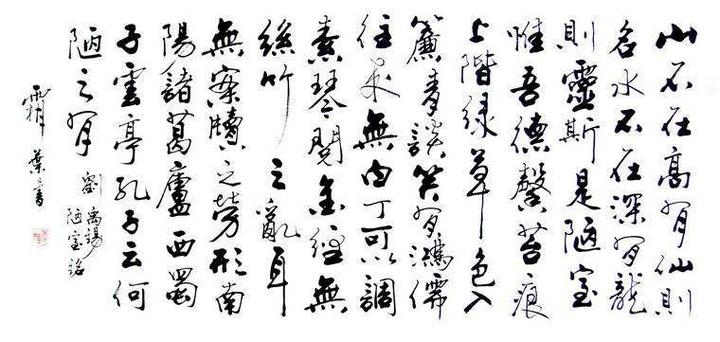 山不在高有仙則
名水不在深有龍
則靈斯是陋室
惟吾德馨苔痕
上階綠草色入
簾青談笑有鴻儒
往來無白丁可以調
素琴閱金經無
絲竹之亂耳
無案牘之勞形南
陽諸葛廬西蜀
子雲亭孔子云何
陋之有
劉禹錫
陋室銘
霜葉書